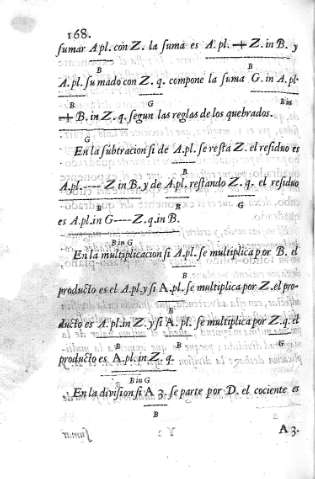 168.
sumar A.pl. con Z. la suma es A.pl. + Z. in B. y
B B
A.pl. sumado con Z. q. compone la suma G. in A.pl.
B G B in
+ B. in Z. q. segun las reglas de los quebrados.
G
En la subtracion si de A.pl. se resta Z. el residuo es
B
A.pl. ---- Z in B. y de A.pl. restando Z. q. el residuo
B B G
es A.pl. in G ---- Z. q. in B.
B in G
En la multiplicacion si A.pl. se multiplica por B. el
B
producto es el A.pl. y si A.pl. se multiplica por Z. el pro-
B
ducto es A.pl. in Z. y si A. pl. se multiplica por Z. q. el
B B G
producto es A.pl. in Z. q.
B in G
En la division si A 3. se parte por D. el cociente es
B
A 3.